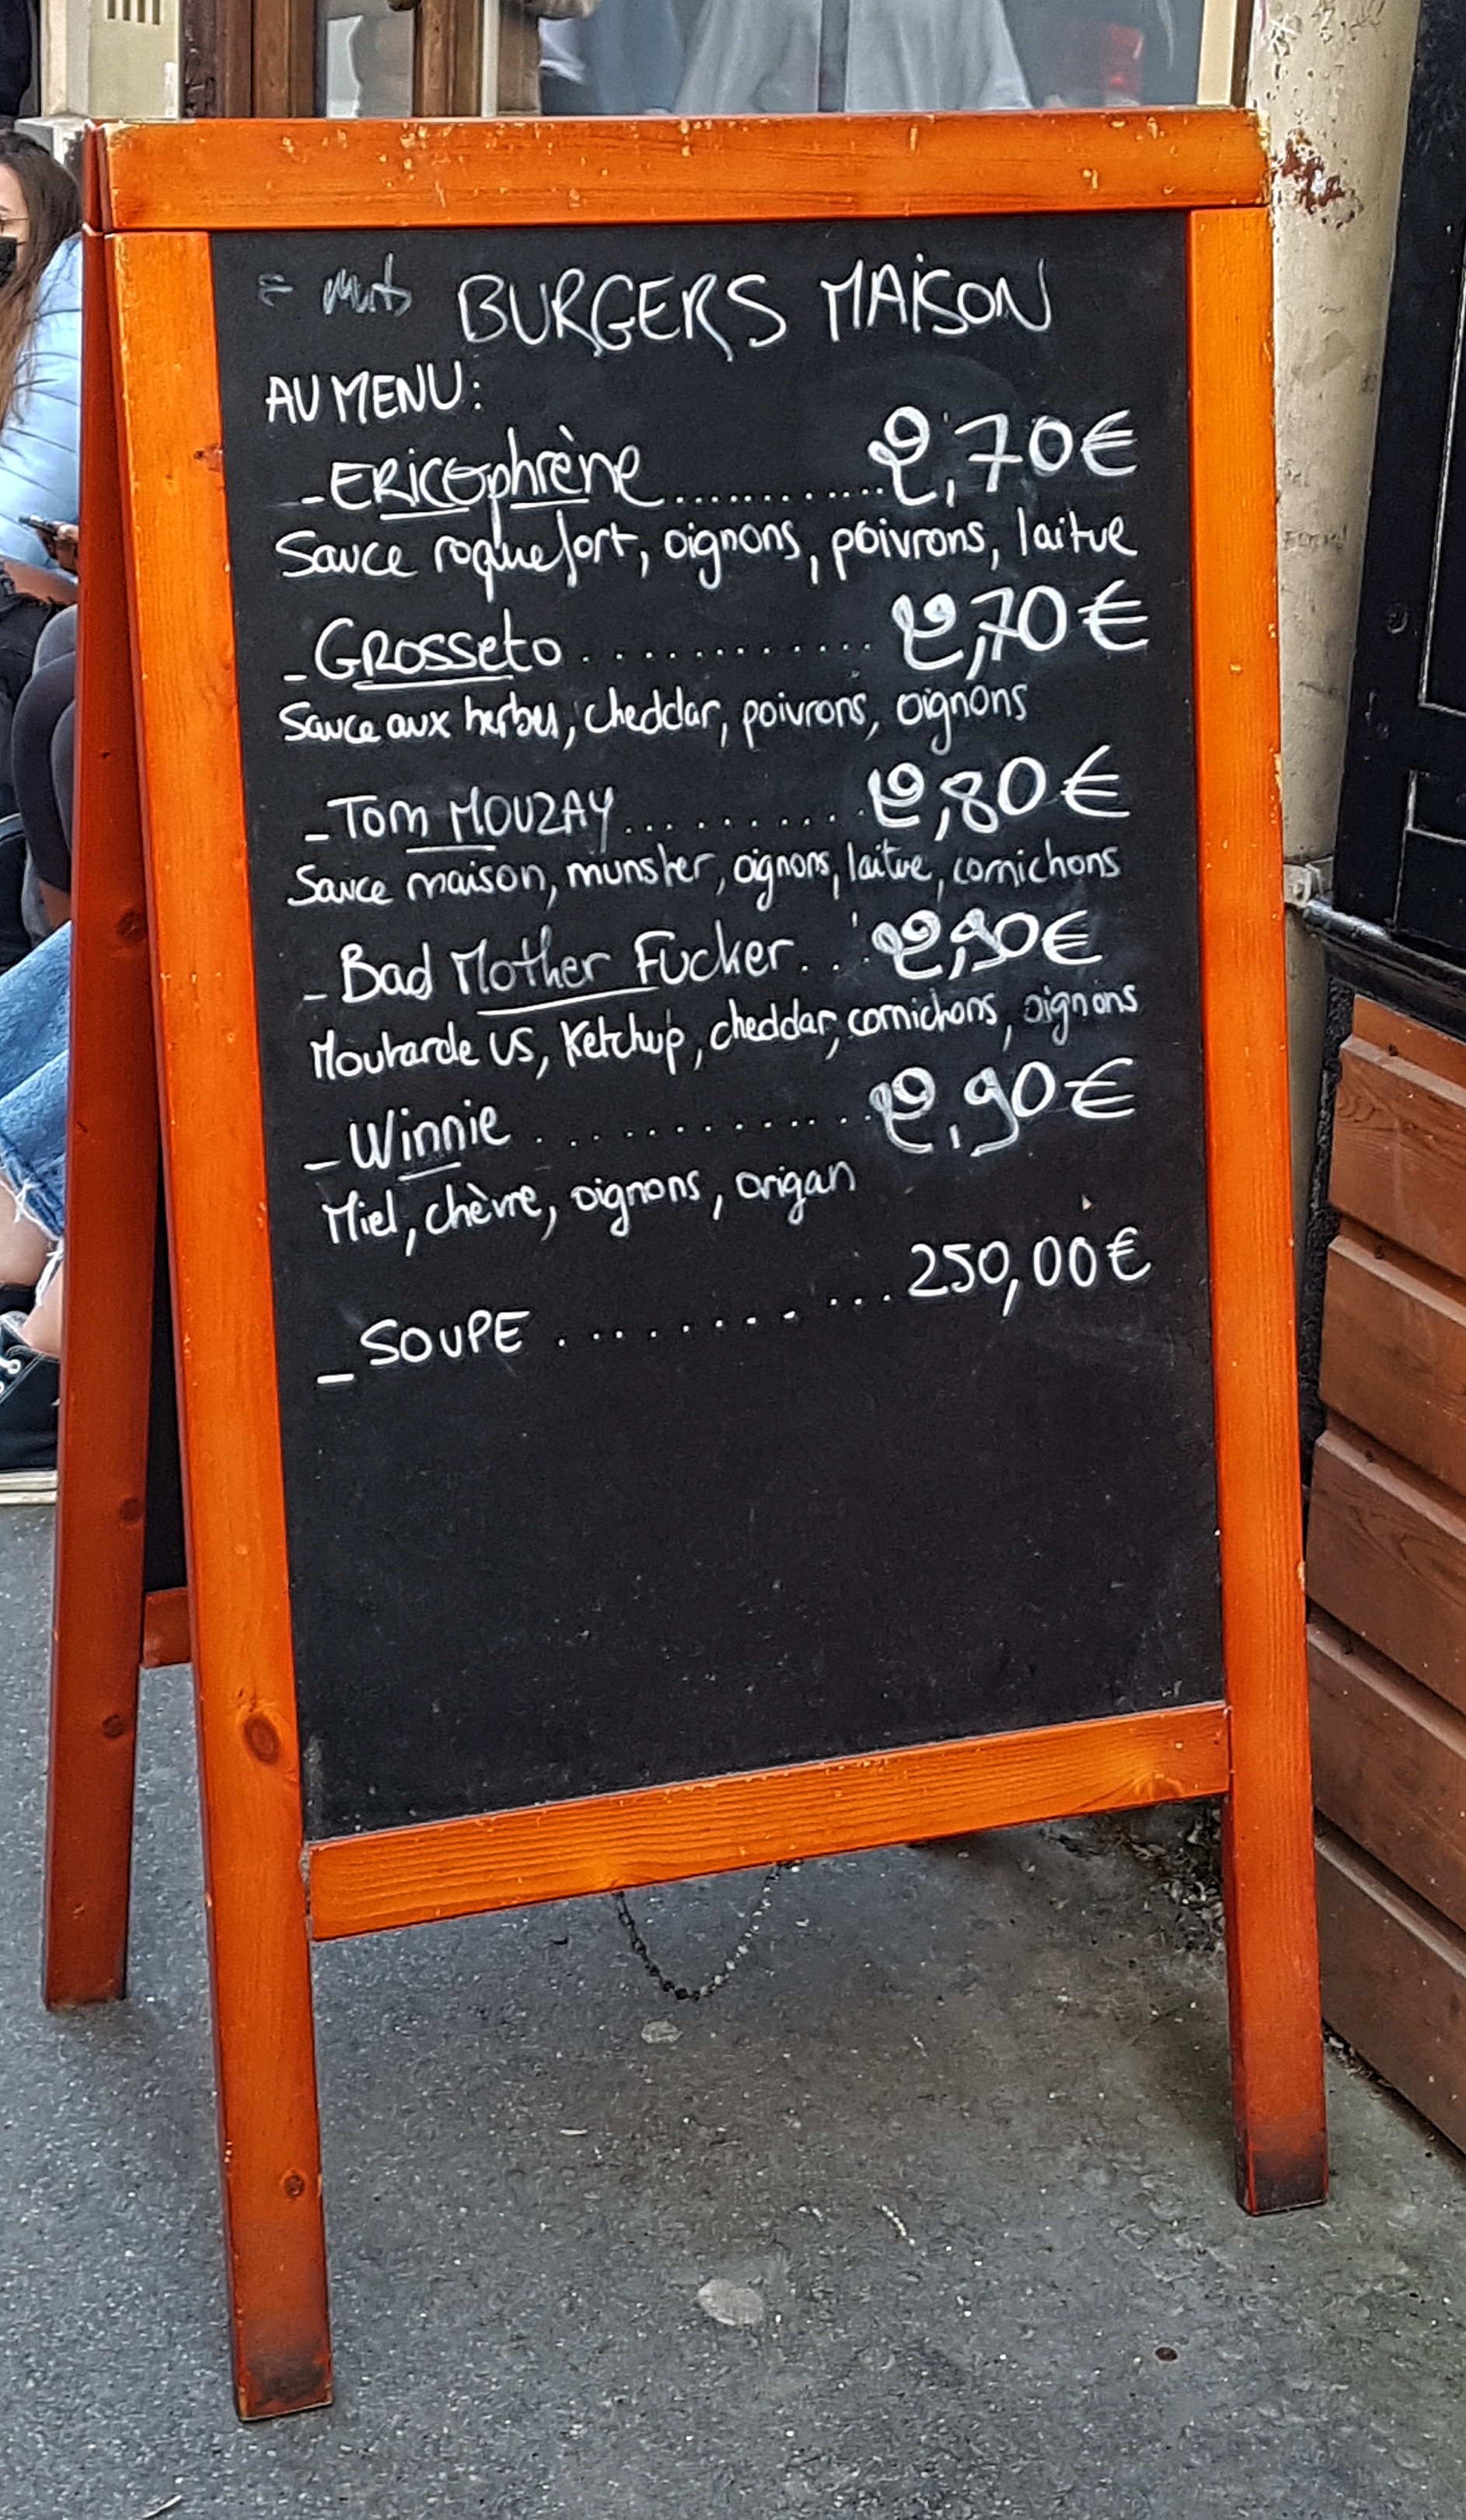 BURGERS MAISON
AU MENU:
_ERICOphrène............2,70€
Sauce roquefort, oignons, poivrons, laitue
_GROSSETO.............2,70€
Sauce aux herbes, cheddar, poivrons, oignons
_TOM MOUZAY..........2,80€
Sauce maison, munster, oignons, laitue, cornichons
_Bad Mother Fucker...2,90€
Moutarde US, Ketchup, cheddar, cornichons, oignons
_Winnie.............2,90€
Miel, chèvre, oignons, origan
_SOUPE...........250,00€